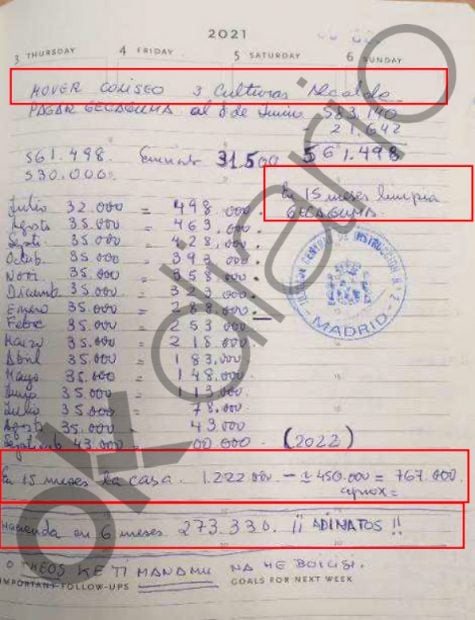 2021
3 THURSDAY 4 FRIDAY 5 SATURDAY 6 SUNDAY
MOVER COLISEO 3 Culturas Alcalde
PAGAR GECAGUMA al 8 de Junio 583.140
- 21.642
561.498. 31.500 561.498
530.000.
En 15 meses limpia
GECAGUMA
Julio 32.000 = 498.000.
Agosto 35.000 = 463.000.
Septi 35.000 = 428.000.
Octub. 35.000 = 393.000.
Novi 35.000 = 358.000.
Diciemb 35.000 = 323.000.
Enero 35.000 = 288.000.
Febre 35.000 = 253.000
Marzo 35.000 = 218.000
Abril 35.000 = 183.000
Mayo 35.000 = 148.000
Junio 35.000 = 113.000
Julio 35.000 = 78.000
Agosto 35.000 = 43.000
Septiemb 43.000 = 00.000 (2022)
MADRID
En 15 meses la casa. 1.222.000 - ± 450.000 = 767.000
aprox =
Hacienda en 6 meses 273.330. ¡¡ ADINATOS !!
O THEOS KE TI MANAMU NA ME
IMPORTANT FOLLOW-UPS GOALS FOR NEXT WEEK
okdiario